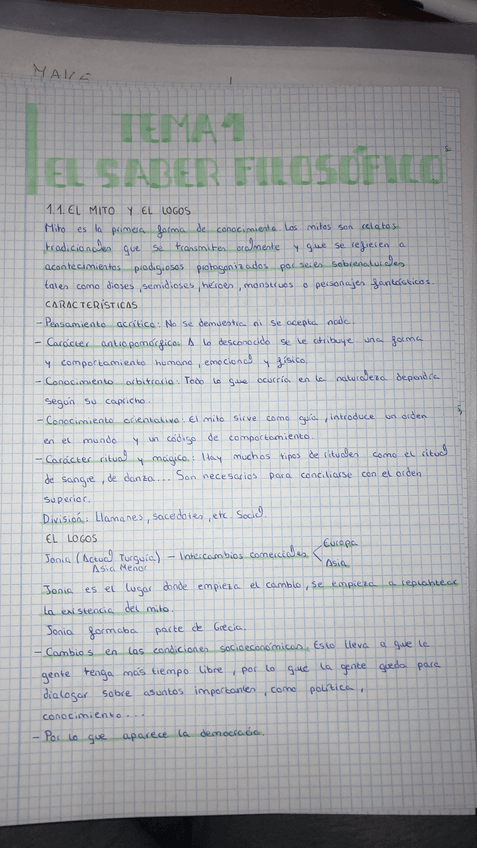 TEMA 1
EL SABER FILOSÓFICO
1.1. EL MITO Y EL LOGOS
Mito es la primera forma de conocimiento. Los mitos son relatos
tradicionales que se transmiten oralmente y que se refieren a
acontecimientos prodigiosos protagonizados por seres sobrenaturales
tales como dioses, semidioses, héroes, monstruos o personajes fantásticos.
CARACTERÍSTICAS
- Pensamiento acrítico: No se demuestra ni se acepta nada.
- Carácter antropomórgico: A lo desconocido se le atribuye una forma
y comportamiento humano, emocional y físico.
- Conocimiento arbitrario: Todo lo que ocurría en la naturaleza dependía
según su capricho.
- Conocimiento orientativo: El mito sirve como guía, introduce un orden
en el mundo y un código de comportamiento.
- Carácter ritual y mágico: Hay muchos tipos de rituales como el ritual
de sangre, de danza... Son necesarios para conciliarse con el orden
superior.
División: Llamanes, sacedores, etc. Social.
EL LOGOS
Jonia (Actual Turquía) – Intercambios comerciales < Europa
Asia Menor
Asia
Jonia es el lugar donde empieza el cambio, se empieza a replantear
la existencia del mito.
Jonia formaba parte de Grecia.
- Cambios en las condiciones socioeconómicas. Esto lleva a que la
gente tenga más tiempo libre, por lo que la gente queda para
dialogar sobre asuntos importantes, como política,
conocimiento...
- Por lo que aparece la democracia.